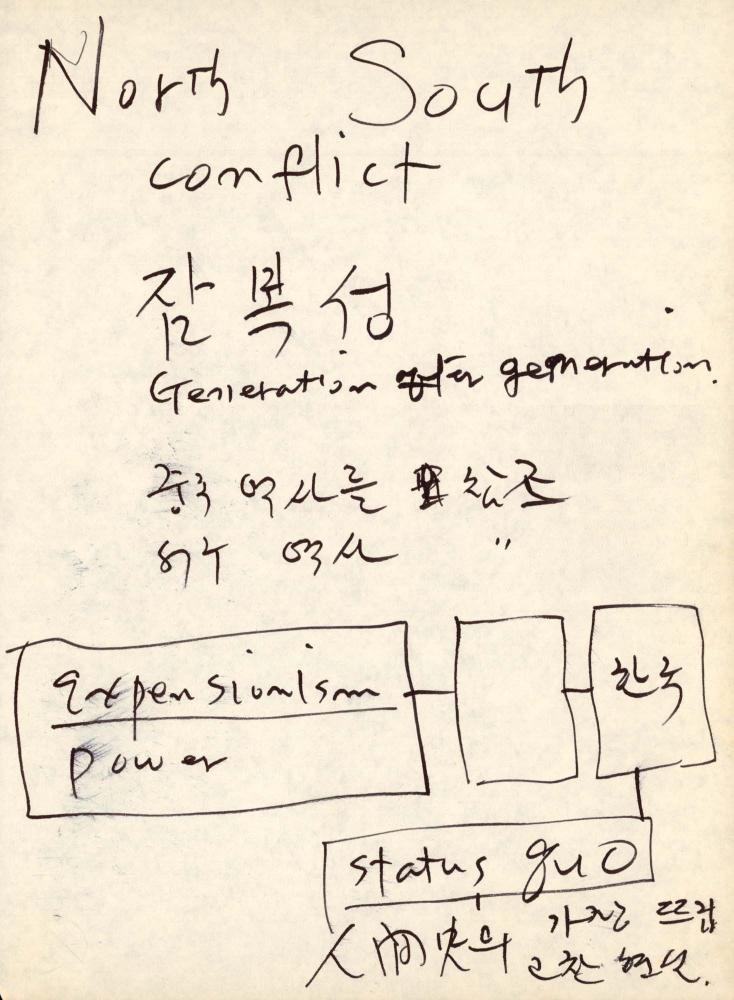 North South
conflict
잠복성
Generation after generation.
중국 역사를 참조
서구 역사 〃
expensionism
power
한국
status quo
人間史의 가장 뜨겁
고 찬 현실.